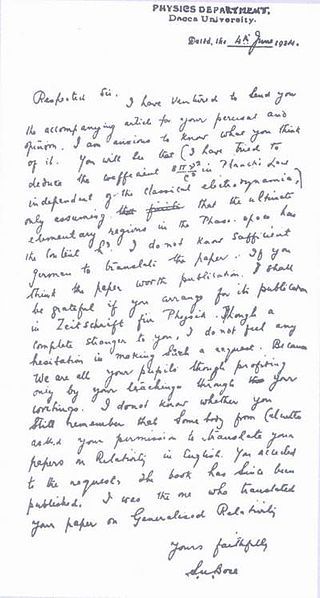 PHYSICS DEPARTMENT,
Dacca University.
Dated, the 4th June, 1924.
Respected Sir, I have ventured to send you
the accompanying article for your perusal and
opinion. I am anxious to know what you think
of it. You will see that I have tried to
deduce the coefficient 8πν²/c³ in Planck's Law
independent of the classical electrodynamics,
only assuming that the ultimate
elementary regions in the Phase-space has
the content h³. I do not know sufficient
german to translate the paper. If you
think the paper worth publication, I shall
be grateful if you arrange for its publication
in Zeitschrift für Physik. Though a
complete stranger to you, I do not feel any
hesitation in making such a request. Because
We are all your pupils though profiting
only by your teachings through your
writings. I donot know whether you
Still remember that Somebody from Calcutta
asked your permission to translate your
papers on Relativity in English. You acceeded
to the request. The book has since been
published. I was the one who translated
your paper on Generalised Relativity
Yours faithfully
S.N. Bose